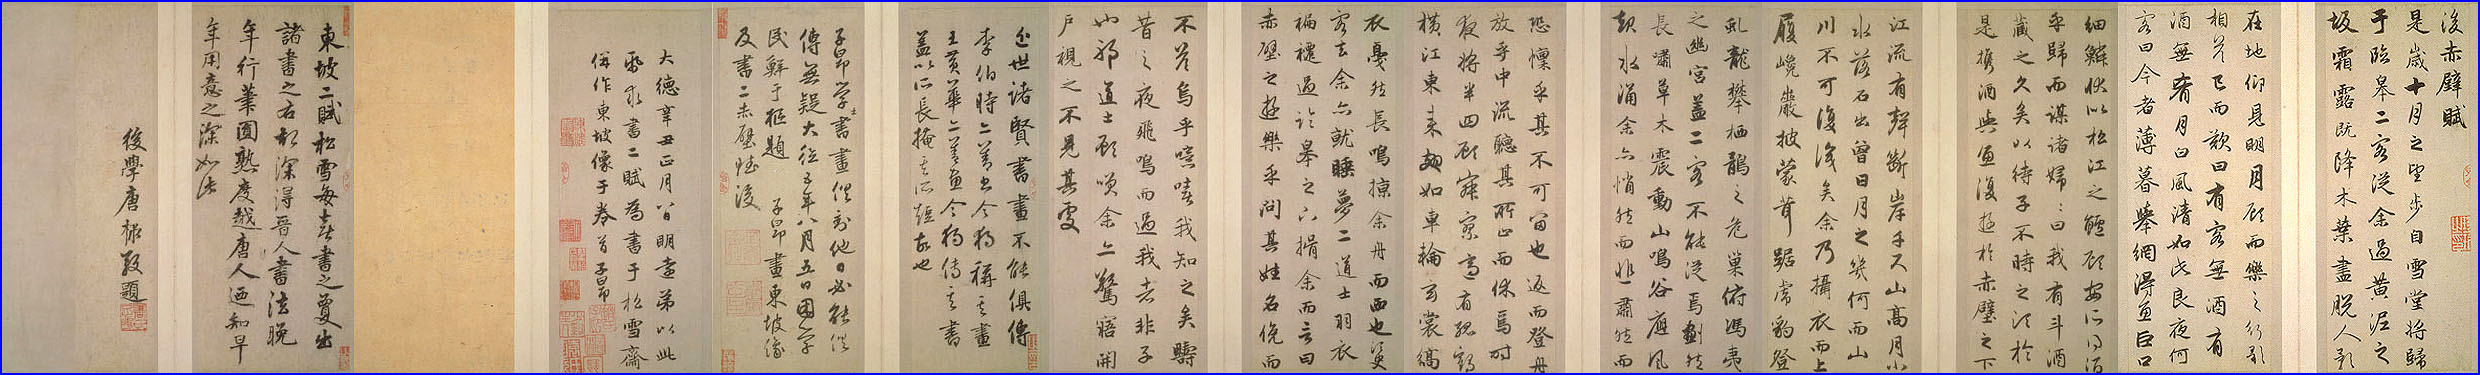 後赤壁賦
是歲十月之望步自雪堂將歸
于臨皋二客從余過黃泥之
坂霜露既降木葉盡脫人影
在地仰見明月顧而樂之行歌
相答已而歎曰有客無酒有
酒無肴月白風清如此良夜何
客曰今者薄暮舉網得魚巨口
細鱗狀似松江之鱸顧安所得酒
乎歸而謀諸婦婦曰我有斗酒
藏之久矣以待子不時之須於
是攜酒與魚復遊於赤壁之下
江流有聲斷岸千尺山高月小
水落石出曾日月之幾何而山
川不可復識矣余乃攝衣而上
履巉巖披蒙茸踞虎豹登
虬龍攀栖鶻之危巢俯馮夷
之幽宮蓋二客不能從焉劃然
長嘯草木震動山鳴谷應風
起水涌余亦悄然而悲肅然而
恐懍乎其不可留也返而登舟
放乎中流聽其所止而休焉時
夜將半四顧寂寥適有孤鶴
橫江東來翅如車輪玄裳縞
衣戛然長鳴掠余舟而西也須臾
客去余亦就睡夢二道士羽衣
褊襳過臨皋之下揖余而言曰
赤壁之遊樂乎問其姓名俛而
不答烏乎噫嘻我知之矣疇
昔之夜飛鳴而過我者非子
也邪道士顧笑余亦驚寤開
戶視之不見其處
近世諸賢書畫不能俱傳
李伯時二美也今獨稱其畫
王黃華二美也今獨傳其書
蓋以所長掩其所短故也
子昂學士書畫俱到他日必能俱
傳無疑大德五年八月五日困學
民鮮于樞題子昂畫東坡像
及書二赤壁賦後
大德辛丑正月八日明遠弟以此
紙求書二賦為書于松雪齋
併作東坡像于卷首子昂
東坡二賦松雪每喜書之夐出
諸書之右初深得晉人書法晚
年行筆圓熟度越唐人迺知早
年用意之深如此
後學唐棣敬題